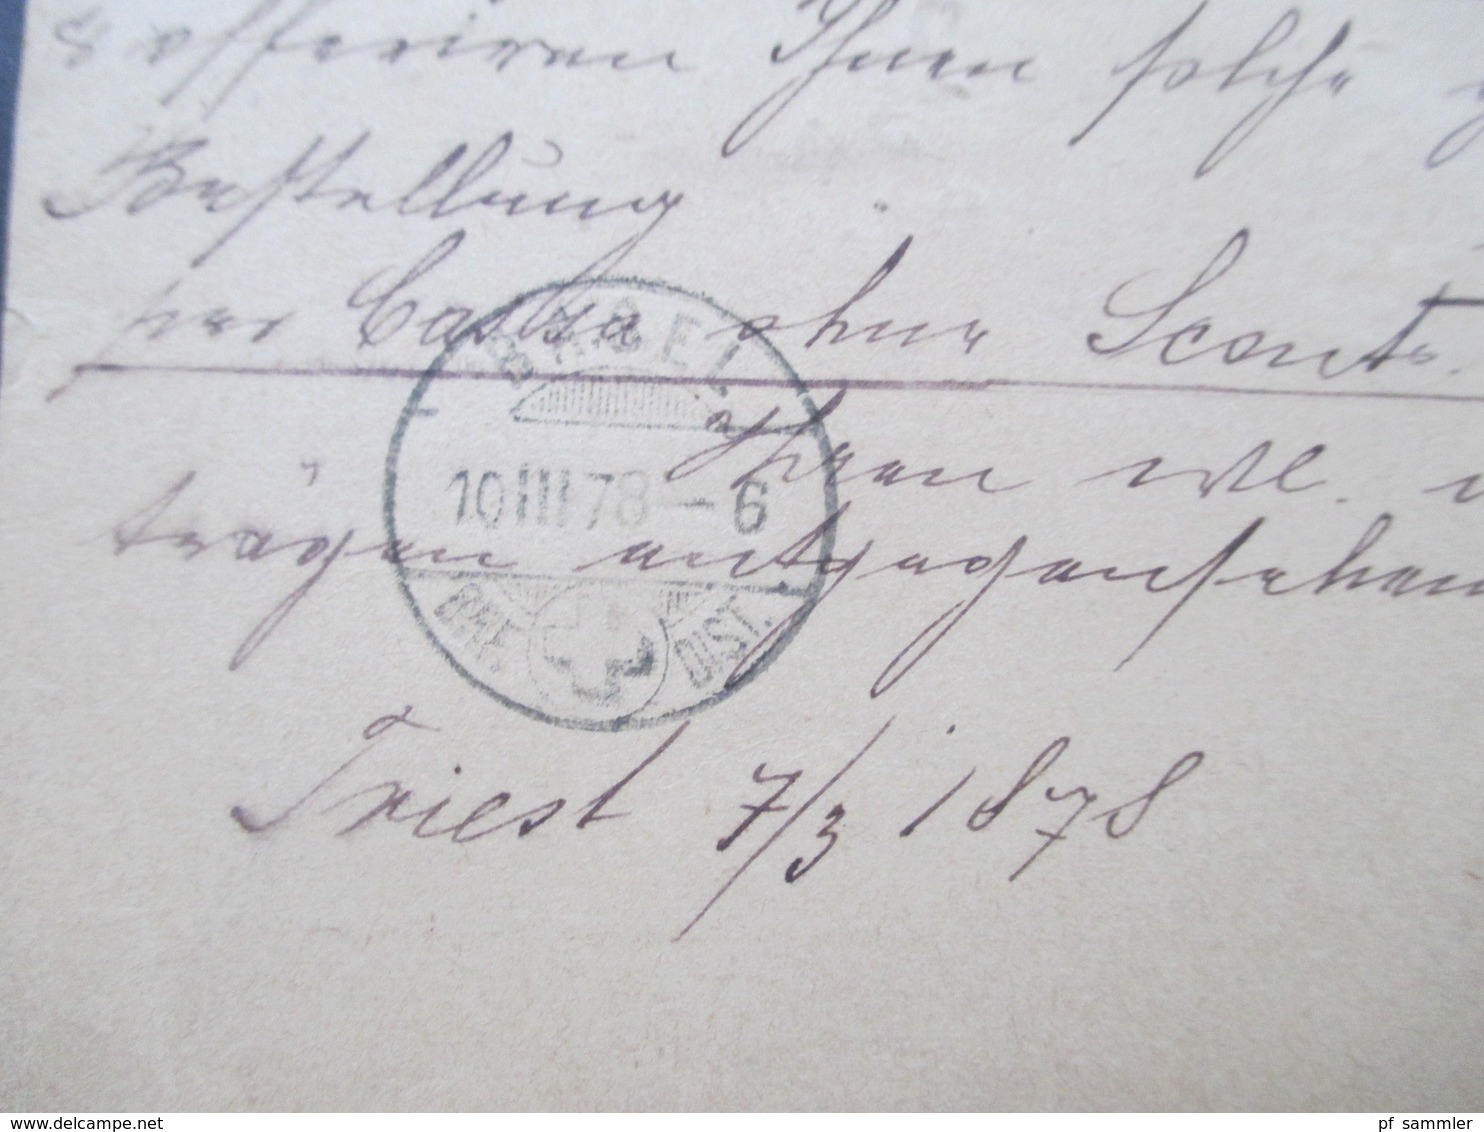 & offeriren Ihnen solche
Bestellung
per Cassa ohne Sconto.
Ihren wl.
trägen entgegensehen
BASEL
10 III 78 – 6
BRF. DIST.
Triest 7/3 1878
www.delcampe.net
pf_sammler